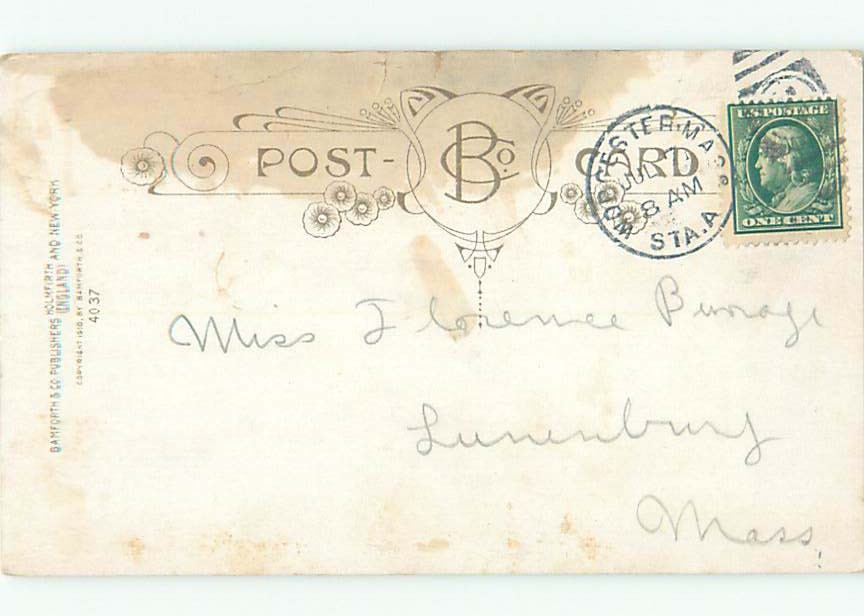 POST- B Co CARD
WORCESTER, MASS.
JUL
8 AM
STA. A
U.S. POSTAGE
ONE CENT
BAMFORTH & CO. PUBLISHERS HOLMFIRTH AND NEW YORK
(ENGLAND)
COPYRIGHT 1910, BY BAMFORTH & CO.
4037
Miss Florence Burrage
Lunenburg
Mass.